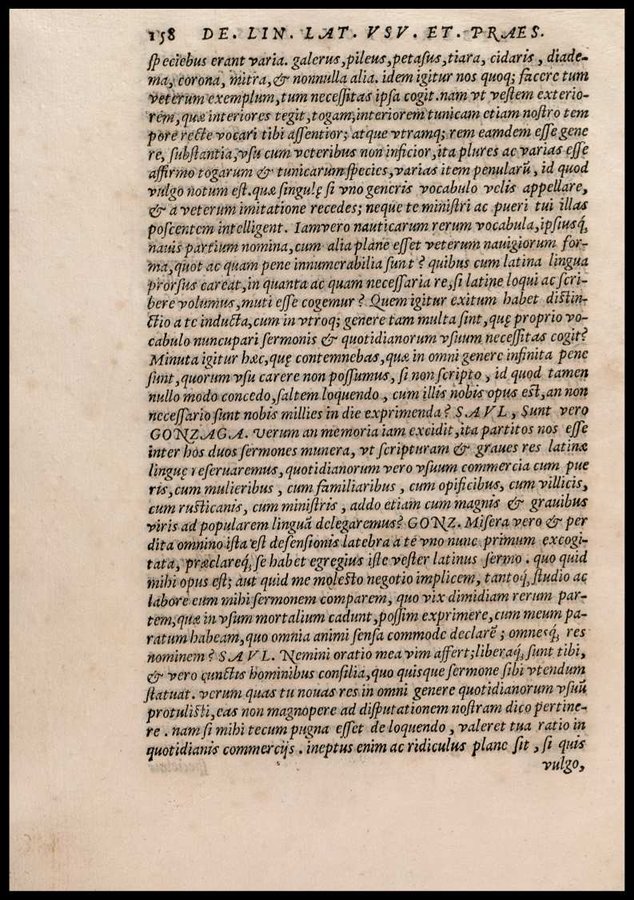 158 DE. LIN. LAT. VSV. ET. PRAES.
speciebus erant varia. galerus, pileus, petasus, tiara, cidaris, diade-
ma, corona, mitra, & nonnulla alia. idem igitur nos quoq; facere tum
veterum exemplum, tum necessitas ipsa cogit. nam vt vestem exterio-
rem, quæ interiores tegit, togam, interiorem tunicam etiam nostro tem
pore recte vocari tibi assentior; atque vtramq; rem eamdem esse gene
re, substantia, vsu cum veteribus non inficior, ita plures ac varias esse
affirmo togarum & tunicarum species, varias item penularū, id quod
vulgo notum est. quæ singulę si vno generis vocabulo velis appellare,
& a veterum imitatione recedes; neque te ministri ac pueri tui illas
poscentem intelligent. Iamvero nauticarum rerum vocabula, ipsiusq́,
nauis partium nomina, cum alia plane esset veterum nauigiorum for-
ma, quot ac quam pene innumerabilia sunt? quibus cum latina lingua
prorsus careat, in quanta ac quam necessaria re, si latine loqui ac scri-
bere volumus, muti esse cogemur? Quem igitur exitum habet distin-
ctio a te inducta, cum in vtroq; genere tam multa sint, quę proprio vo-
cabulo nuncupari sermonis & quotidianorum vsuum necessitas cogit?
Minuta igitur hæc, quę contemnebas, quæ in omni genere infinita pene
sunt, quorum vsu carere non possumus, si non scripto, id quod tamen
nullo modo concedo, saltem loquendo, cum illis nobis opus est, an non
necessario sunt nobis millies in die exprimenda? SAVL, Sunt vero
GONZAGA. Verum an memoria iam excidit, ita partitos nos esse
inter hos duos sermones munera, vt scripturam & graues res latinæ
linguę reseruaremus, quotidianorum vero vsuum commercia cum pue
ris, cum mulieribus, cum familiaribus, cum opificibus, cum villicis,
cum rusticanis, cum ministris, addo etiam cum magnis & grauibus
viris ad popularem linguā delegaremus? GONZ. Misera vero & per
dita omnino ista est defensionis latebra a te vno nunc primum excogi-
tata, præclareq́, se habet egregius iste vester latinus sermo. quo quid
mihi opus est; aut quid me molesto negotio implicem, tantoq́, studio ac
labore eum mihi sermonem comparem, quo vix dimidiam rerum par-
tem, quæ in vsum mortalium cadunt, possim exprimere, cum meum pa-
ratum habeam, quo omnia animi sensa commode declarē; omnesq́, res
nominem? SAVL. Nemini oratio mea vim affert; liberaq́, sunt tibi,
& vero cunctis hominibus consilia, quo quisque sermone sibi vtendum
statuat. verum quas tu nouas res in omni genere quotidianorum vsuū
protulisti, eas non magnopere ad disputationem nostram dico pertine-
re. nam si mihi tecum pugna esset de loquendo, valeret tua ratio in
quotidianis commercijs. ineptus enim ac ridiculus plane sit, si quis
vulgo,